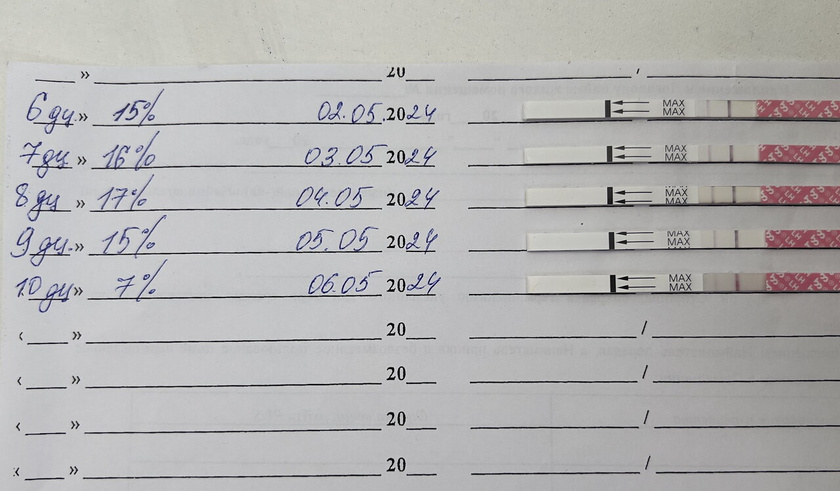 ___ » ___ 20___ ___ / ___
6 дц » 15% 02.05.2024 MAX MAX
7 дц » 16% 03.05 2024 MAX MAX
8 дц » 17% 04.05 2024 MAX MAX
9 дц.» 15% 05.05 2024 MAX MAX
10 дц » 7% 06.05 2024 MAX MAX
‹ ___ » ___ 20___ ___ / ___
‹ ___ » ___ 20___ ___ / ___
‹ ___ » ___ 20___ ___ / ___
‹ ___ » ___ 20___ ___ / ___